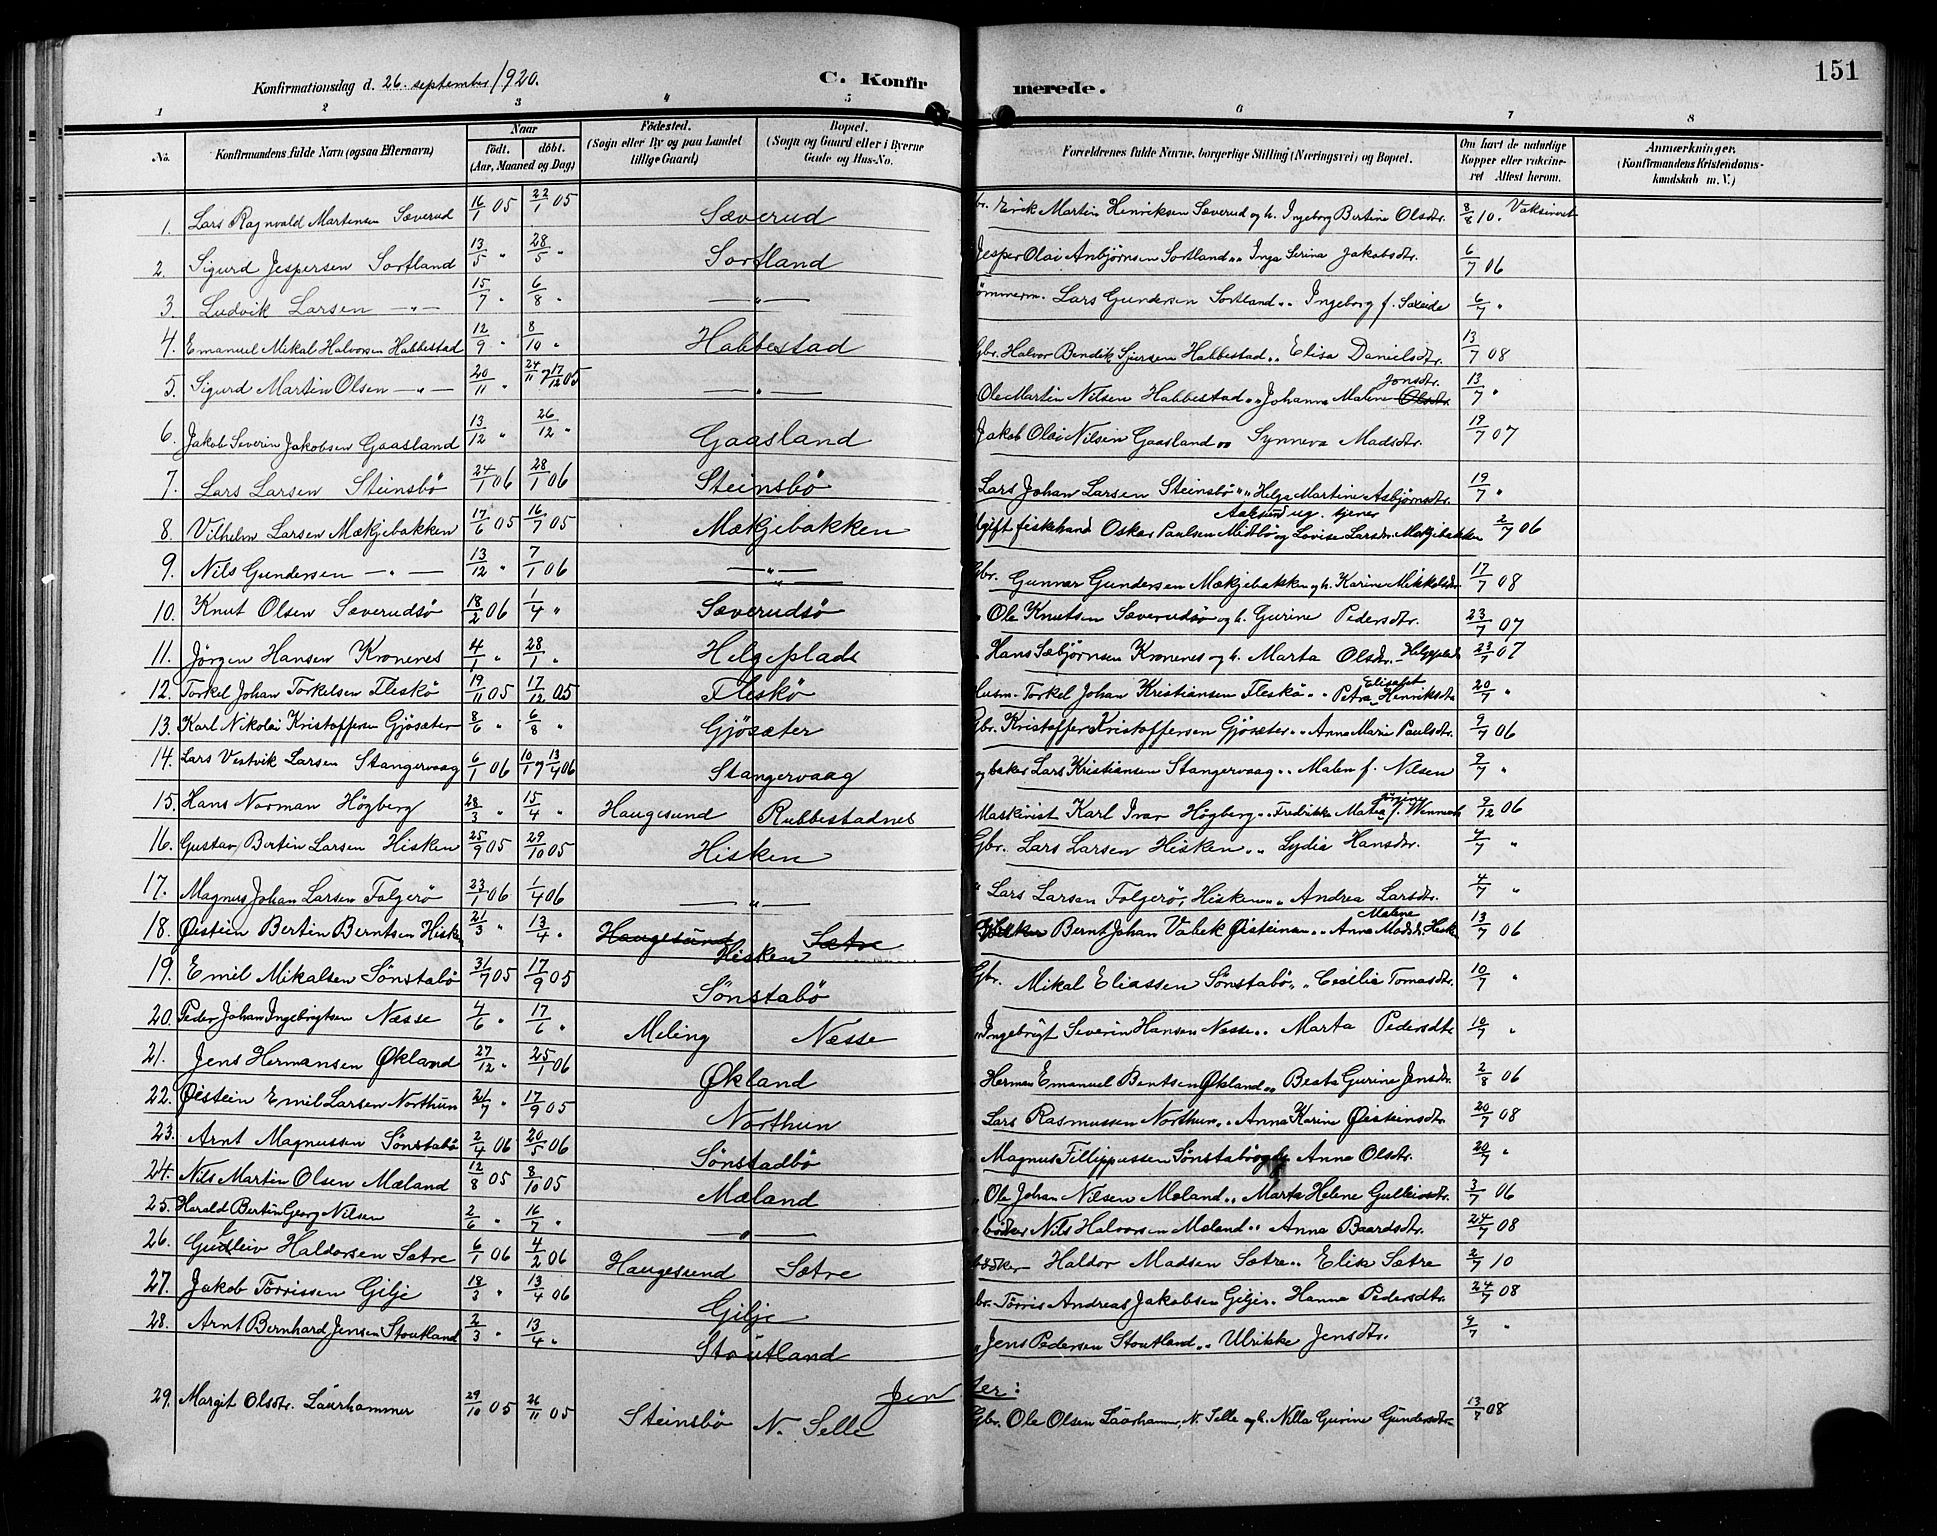 151
Konfirmationsdag d. 26. september 1920. C. Konfirmerede.
1 2 3 4 5 6 7 8
No. Konfirmandens fulde Navn (ogsaa Efternavn) Naar født. døbt. (Aar, Maaned og Dag) Fødested. (Sogn eller By og paa Landet tillige Gaard) Bopæl. (Sogn og Gaard eller i Byerne Gade og Hus-No. Forældrenes fulde Navne, borgerlige Stilling (Næringsvei) og Bopæl. Om havt de naturlige Kopper eller vaccineret Attest herom. Anmærkninger. (Konfirmandens Kristendomskundskab m. V.)
1. Lars Ragnvald Martinsen Sæverud 16/1 05 22/1 05 Sæverud br. Erick Martin Henriksen Sæverud og h. Ingeborg Bertine Olsdtr. 8/8 10. Vaksineret
2. Sigurd Jespersen Sortland 13/5 " 28/5 " Sortland Jesper Olai Anbjørnsen Sortland " " Inga Serina Jakobsdtr. 6/7 06
3. Ludvik Larsen — " — 15/7 " 6/8 " — " — ømmerm. Lars Gundersen Sortland " " Ingeborg f. Sæleide 6/7 "
4. Emanuel Mikal Halvorsen Habbestad 12/9 " 8/10 " Habbestad Gbr. Halvor Bendik Sjursen Habbestad " " Elisa Danielsdtr. 13/7 08
5. Sigurd Martin Olsen — " — 20/11 " 24/11 7 17/12 05 — " — Ole Martin Nilsen Habbestad " " Johanna Malene Jonsdtr. Olsdtr. 13/7 "
6. Jakob Severin Jakobsen Gaasland 13/12 " 26/12 " Gaasland Jakob Olai Nilsen Gaasland " " Synneva Madsdtr. 19/7 07
7. Lars Larsen Steinsbö 24/1 06 28/1 06 Steinsbö Lars Johan Larsen Steinsbö " " Helga Martine Asbjørnsdtr. 19/7 "
8. Vilhelm Larsen Mækjebakken 17/6 05 16/7 05 Mækjebakken Ugift fiskehand Oskar Paulsen Midtbö og ug. tjener Lovise Larsdtr. Mækjebakken 2/7 06
9. Nils Gundersen — " — 13/12 " 7/1 06 — " — Gbr. Gunnar Gundersen Mækjebakken og h. Karine Mikkelsdtr 17/7 08
10. Knut Olsen Sæverudsö 18/2 06 1/4 " Sæverudsö " Ole Knutsen Sæverudsö og h. Gurine Pedersdtr. 23/7 07
11. Jörgen Hansen Kronenes 4/1 " 28/1 " Helgeplads " Hans Sæbjørnsen Kronenes og h. Marta Olsdtr. Helgeplads 23/7 07
12. Torkel Johan Torkelsen Fleskö 19/11 05 17/12 05 Fleskö Husm. Torkel Johan Kristiansen Fleskö " " Petra Elisabet Henriksdtr 20/7 "
13. Karl Nikolai Kristoffersen Gjösæter 8/6 " 6/8 " Gjösæter Gbr. Kristoffer Kristoffersen Gjösæter " " Anna Marie Paulsdtr. 9/7 06
14. Lars Vestvik Larsen Stangervaag 6/1 06 10/1 7 13/4 06 Stangervaag og baker Lars Kristiansen Stangervaag " " Malen f. Nilsen 9/7 "
15. Hans Norman Högberg 28/3 " 15/4 " Haugesund Rubbestadnes Maskinist Karl Ivar Högberg " " Fredrikke Matea f. 9/12 06
16. Gustav Bertin Larsen Hisken 25/9 05 29/10 05 Hisken Gbr. Lars Larsen Hisken " " Lydia Hansdtr. 4/7 "
17. Magnus Johan Larsen Folgerö 23/1 06 1/4 06 — " — " Lars Larsen Folgerö, Hisken " " Andrea Larsdtr. 4/7 "
18. Øistein Bertin Berntsen Hisken 21/3 " 13/4 " Haugesund Sætre Hisken Bernt Johan Vabek Øisteinsen " " Anna Malene Madsdtr. Hisk 13/7 06
19. Emil Mikalsen Sönstabö 31/7 05 17/9 05 Sönstabö Gbr. Mikal Eliassen Sönstabö " " Cecilie Tomasdtr. 10/7 "
20. Peder Johan Ingebrigtsen Næsse 4/6 " 17/6 " Meling Næsse " Ingebrigt Severin Hansen Næsse " " Marta Pedersdtr 10/7 "
21. Jens Hermansen Økland 27/12 " 25/1 06 Økland " Herman Emanuel Bentsen Økland " " Beata Gurine Jensdtr. 2/8 06
22. Øistein Emil Larsen Northun 21/7 " 17/9 05 Northun Lars Rasmussen Northun " " Anna Karine Øisteinsdtr. 20/7 08
23. Arnt Magnussen Sönstabö 2/4 06 20/5 06 Sönstadbö Magnus Fillippussen Sönstabö og h. Anna Olsdtr. 20/7 "
24. Nils Martin Olsen Mæland 12/8 05 8/10 05 Mæland " Ole Johan Nilsen Mæland " " Marta Helene Gulleivsdtr. 3/7 06
25. Harald Bertin Georg Nilsen 2/6 " 16/7 " — " — " bødker Nils Halvorsen Mæland " " Anna Baardsdtr. 24/7 08
26. Gudleiv Haldorsen Sætre 6/1 06 4/2 06 Haugesund Sætre bødker Haldor Madsen Sætre " " Elise Sætre 2/7 10
27. Jakob Törrissen Gilje 18/3 " 13/4 06 Gilje br. Törris Andreas Jakobsen Gilje " " Hanna Pedersdtr. 24/7 08
28. Arnt Bernhard Jensen Stoutland 2/3 " 13/4 " Stoutland " Jens Pedersen Stoutland " " Ulrikke Jensdtr. 9/7 "
Jenter:
29. Margit Olsdtr. Laurhammer 29/10 05 26/11 05 Steinsbö N. Selle Gbr. Ole Olsen Laarhammer, N. Selle og h. Nilla Gurine Gundersdtr 13/8 08